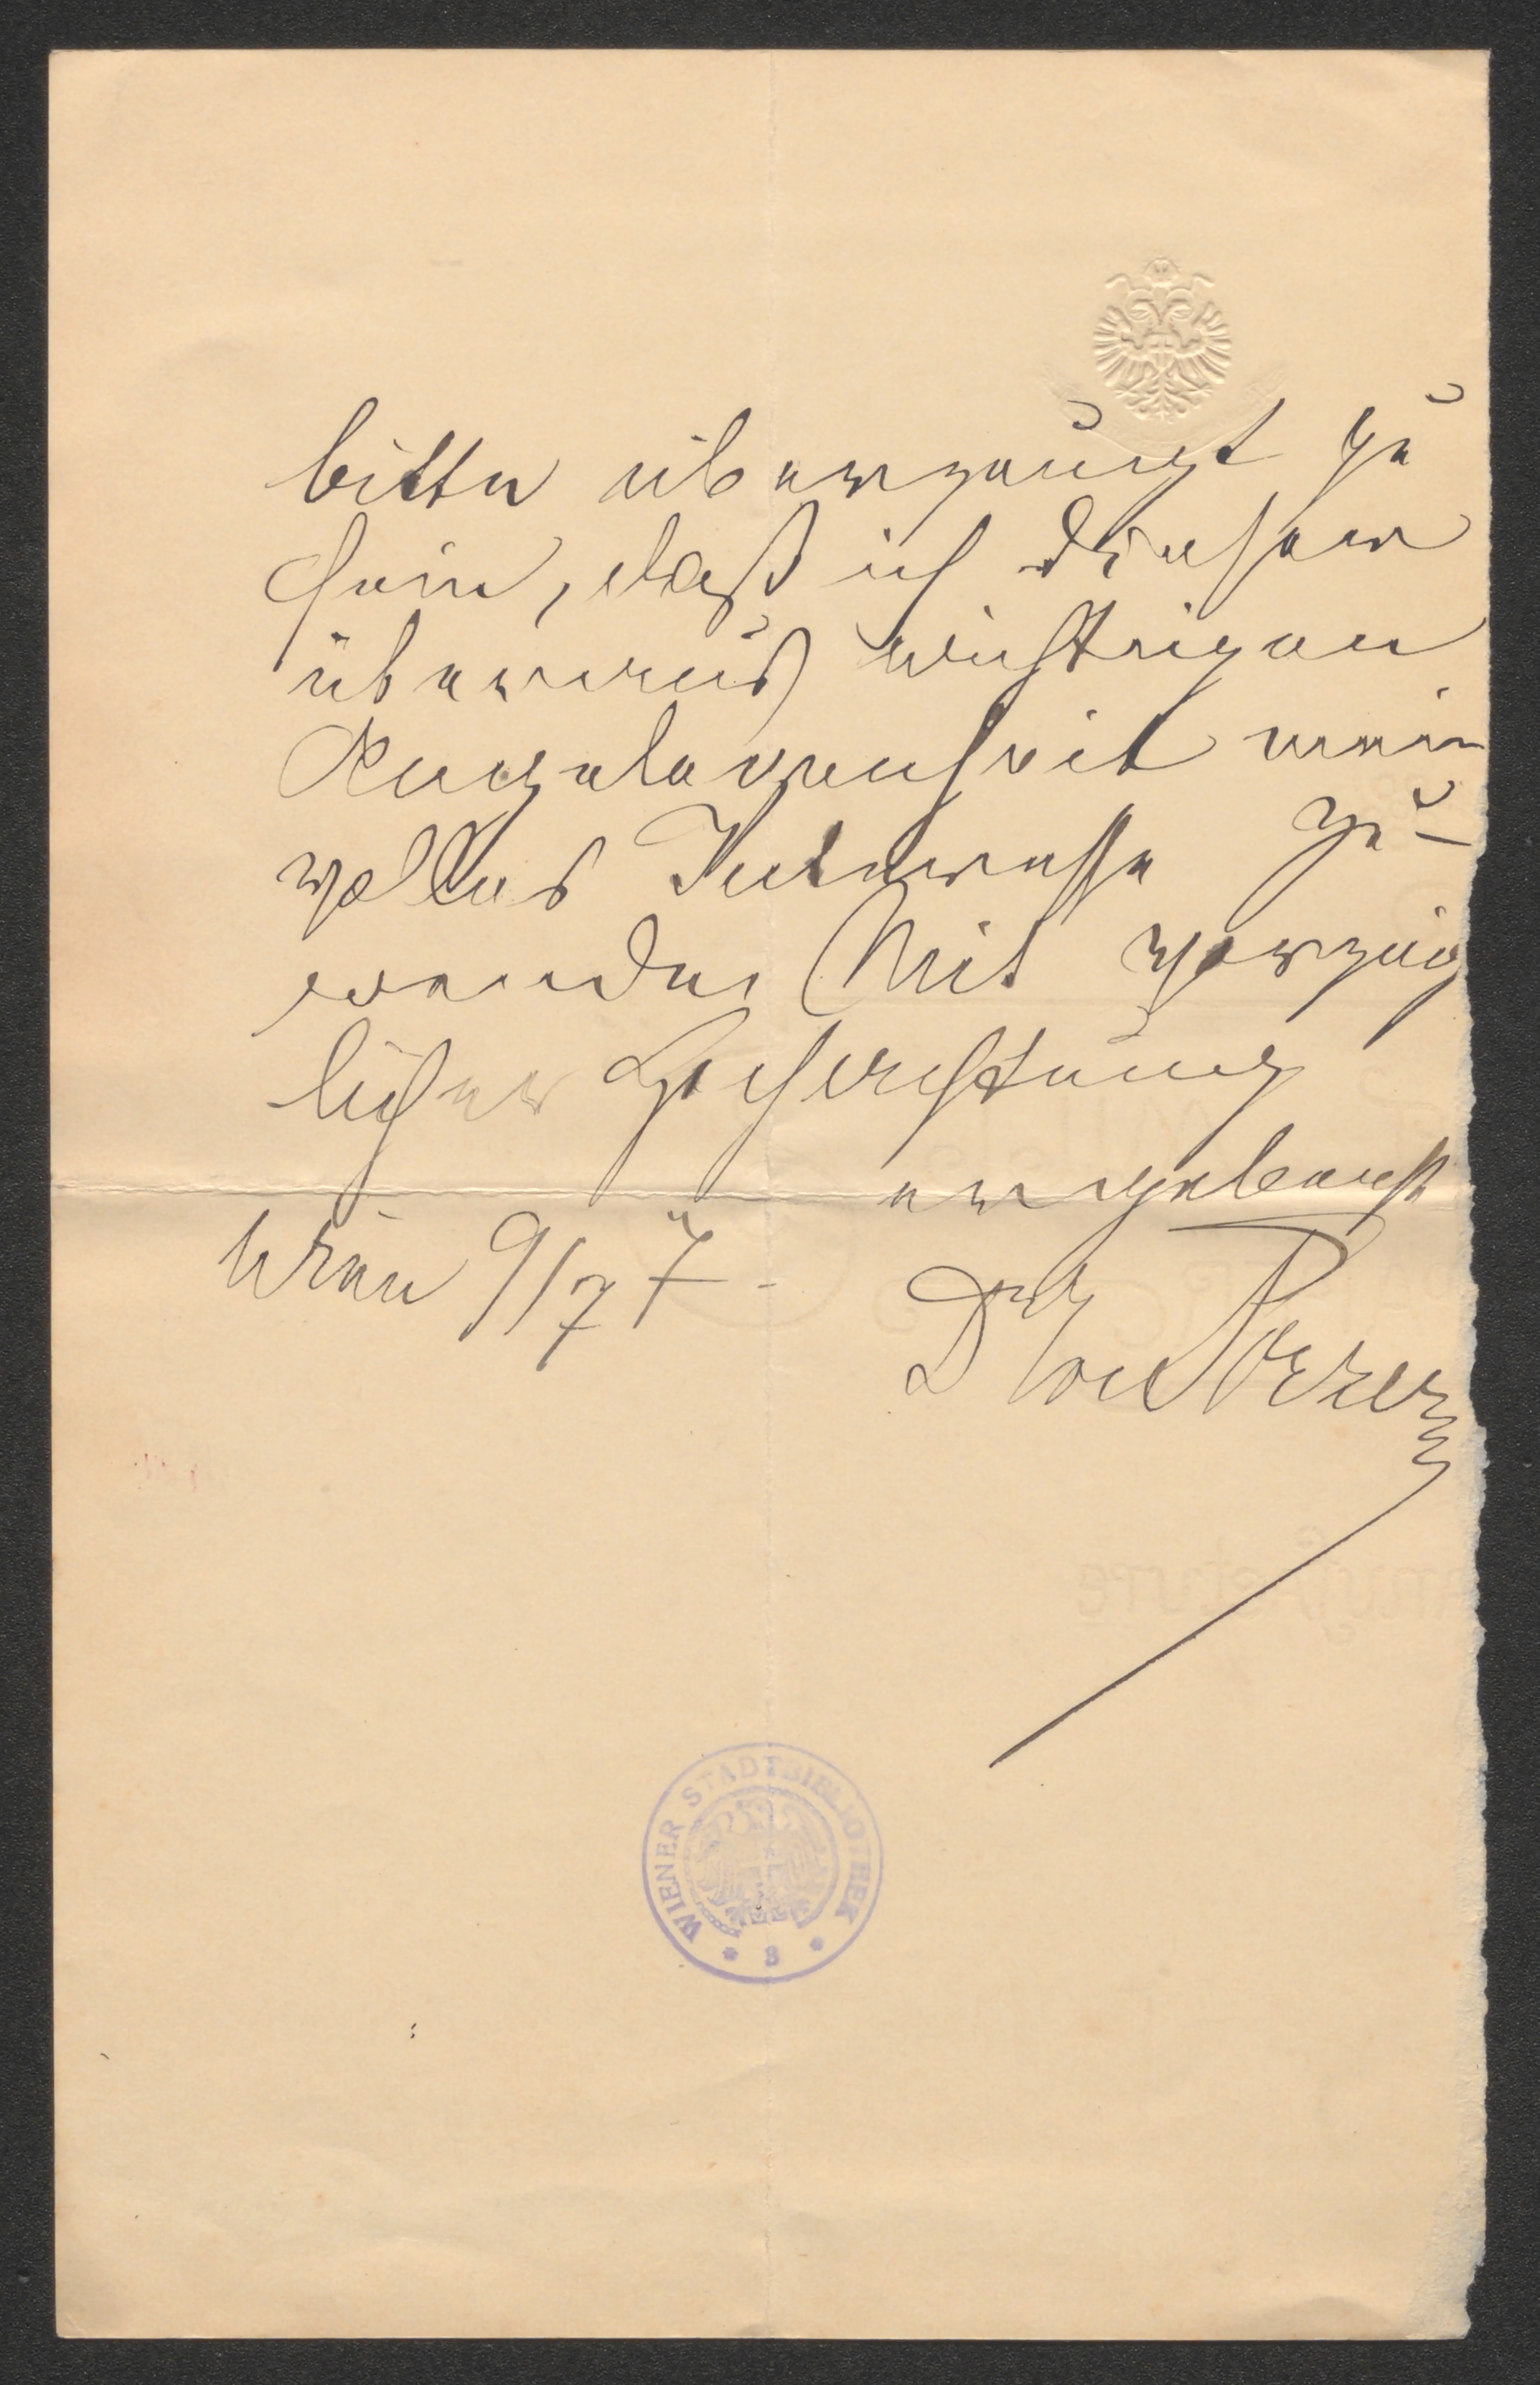 bitte überzeugt zu
sein, daß ich dieser
überaus wichtigen
Angelegenheit mein
volles Interesse zu-
wende. Mit vorzüg
licher Hochachtung
ergebenst
Wien 9/7 7.
Dr
WIENER STADTBIBLIOTHEK